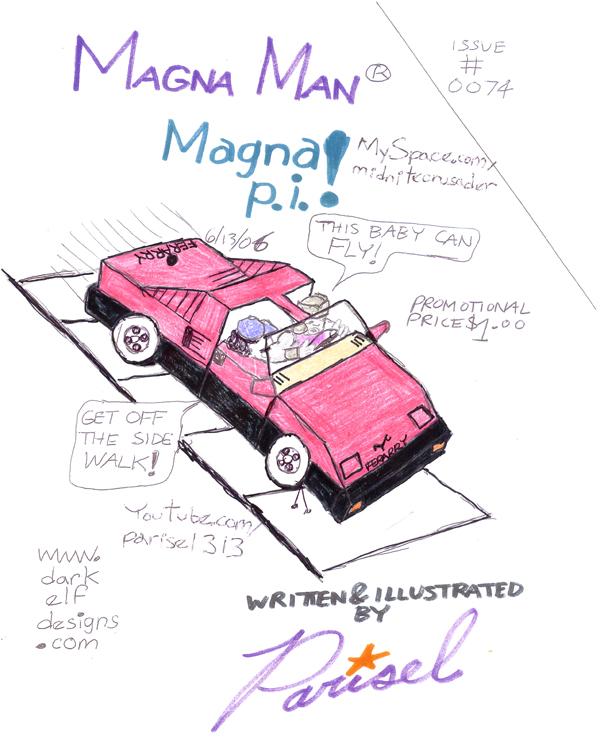 MAGNA MAN®
ISSUE
#
0074
Magna
p.i.!
MySpace.com/
midnitecrusader
6/13/06
THIS BABY CAN
FLY!
FERARRY
PROMOTIONAL
PRICE $1.00
GET OFF
THE SIDE
WALK!
NYC
FERARRY
YouTube.com/
parisel313
www.
dark
elf
designs
.com
WRITTEN & ILLUSTRATED
BY
Parisel